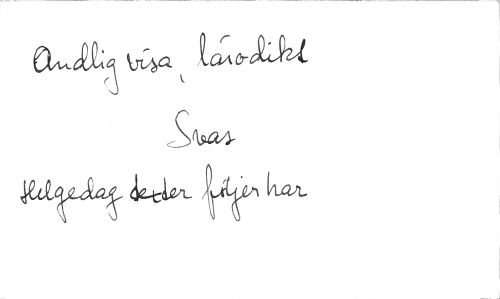 Andlig visa, lärodikt
Svas
Helgedag der följer har